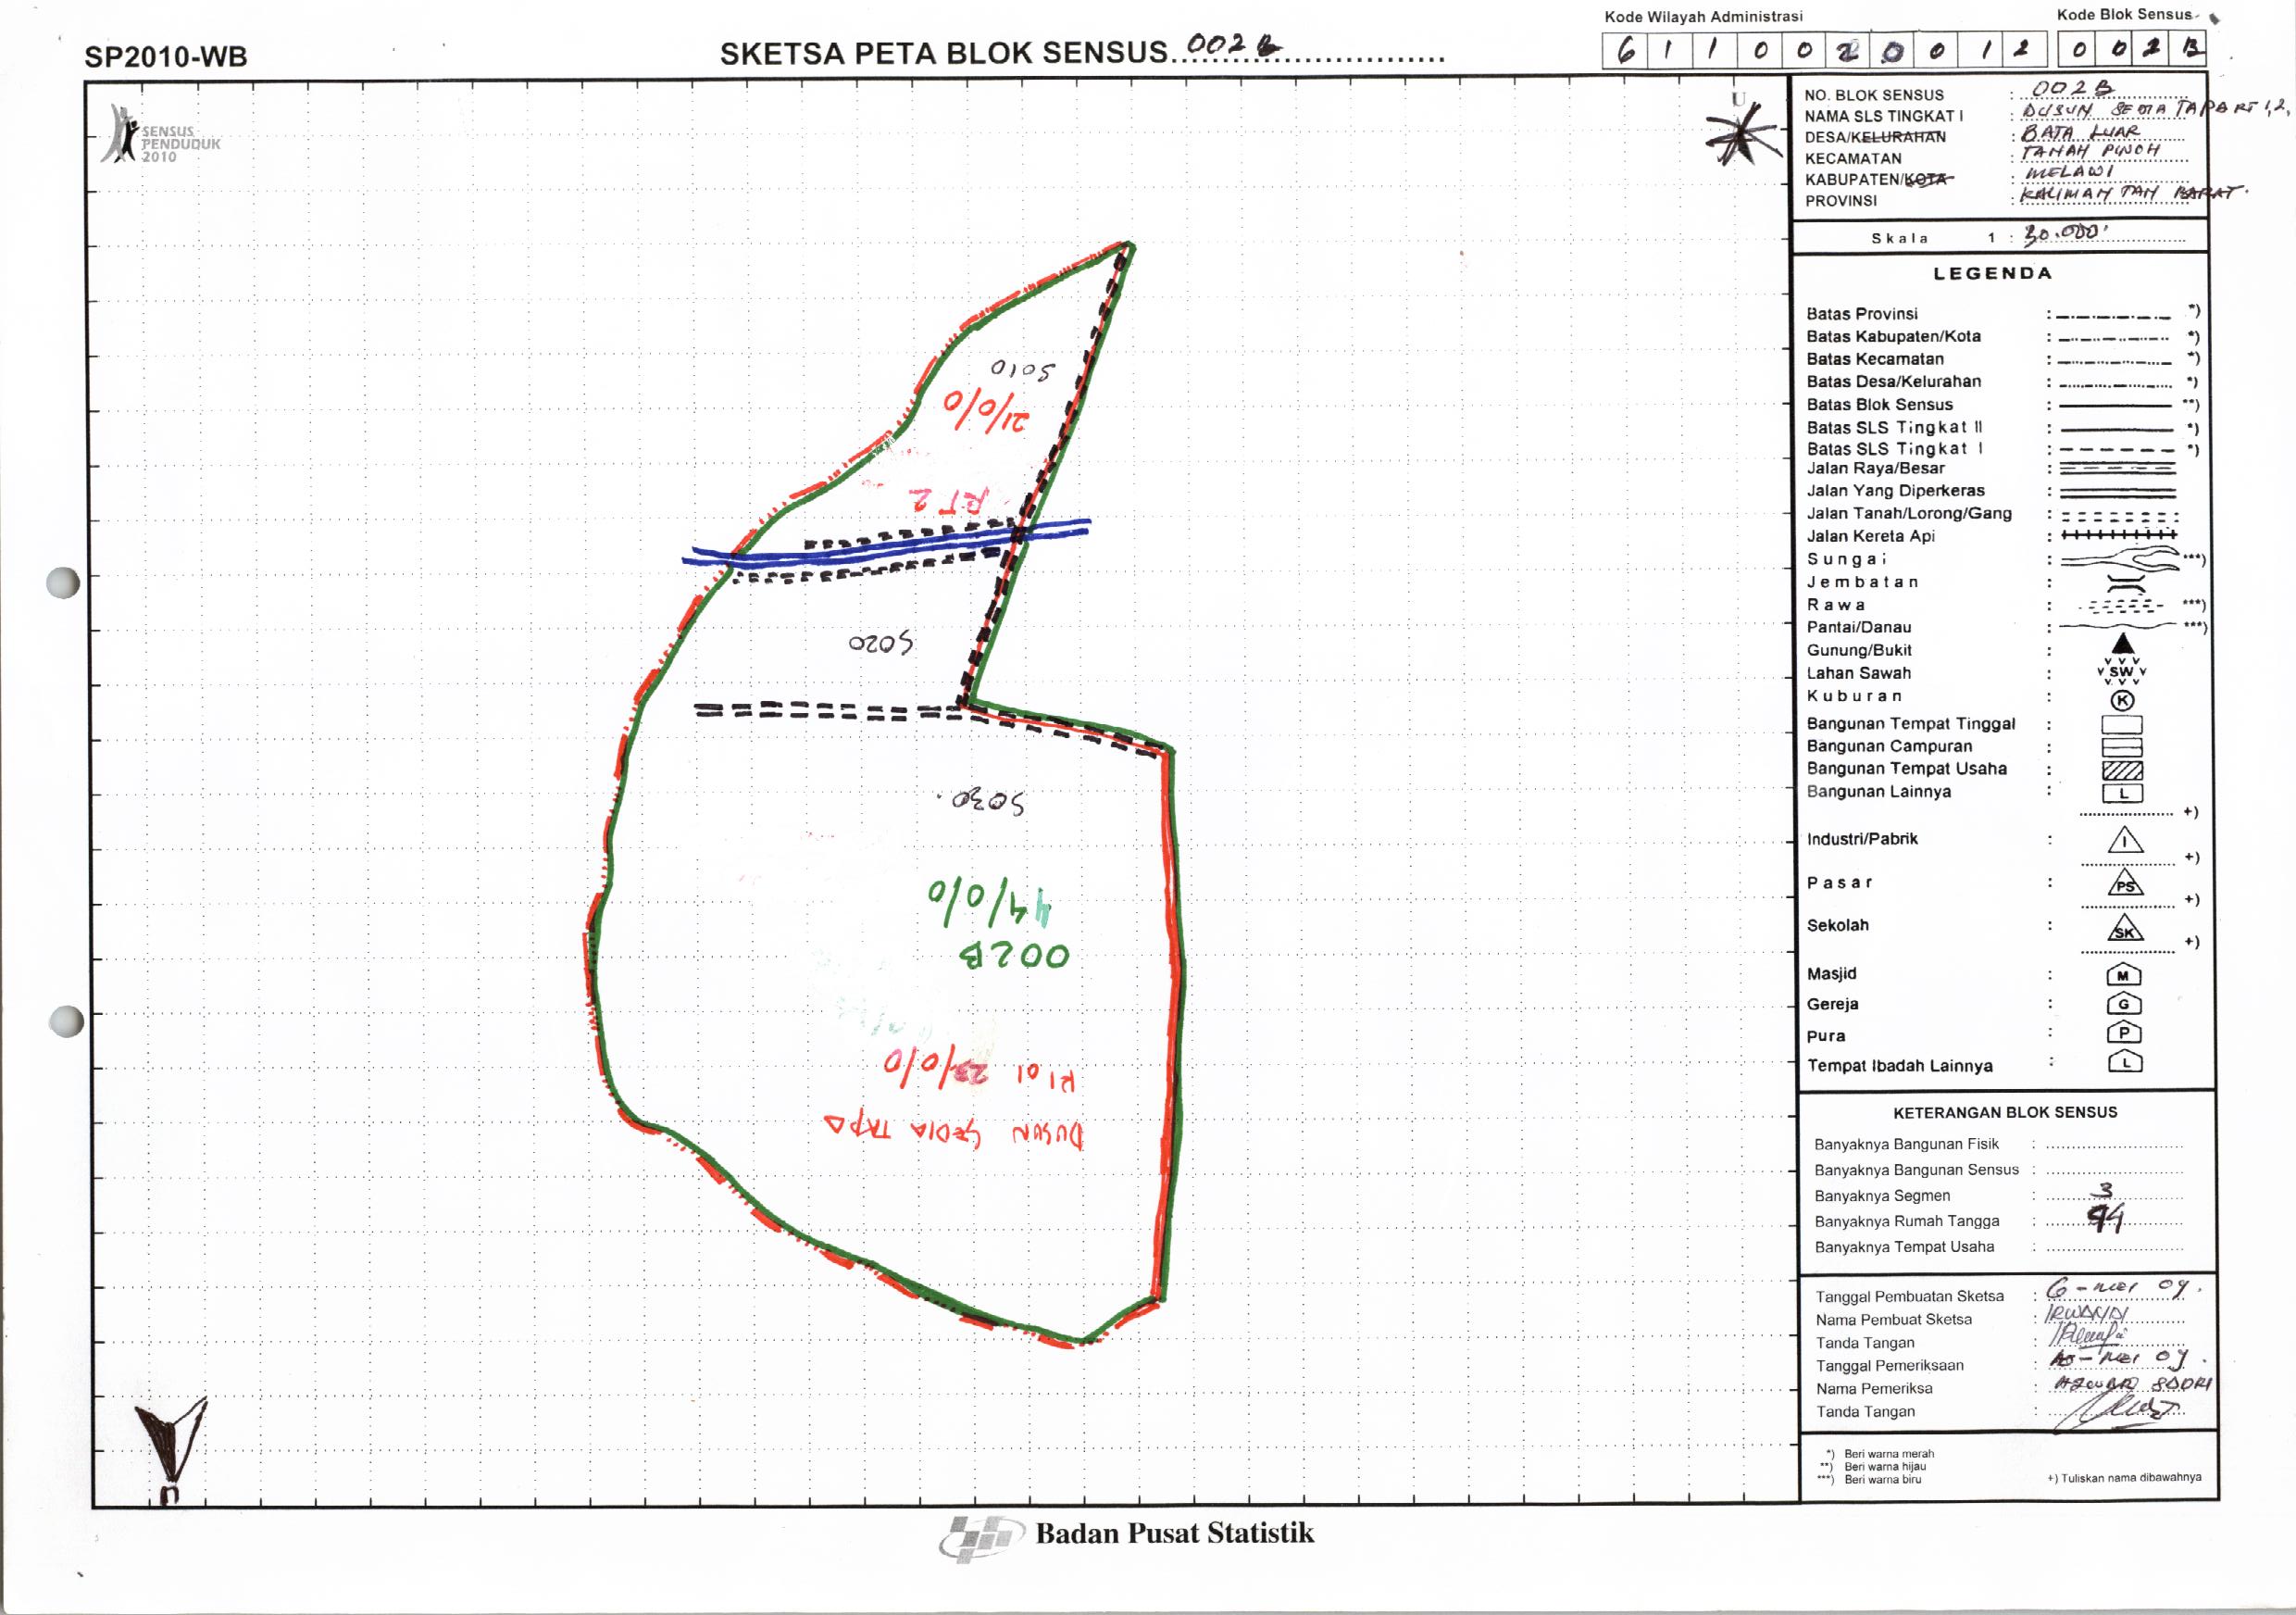 Kode Wilayah Administrasi
Kode Blok Sensus
SP2010-WB
SKETSA PETA BLOK SENSUS 002 B
6 1 1 0 0 2 0 0 1 2
0 0 2 B
SENSUS
PENDUDUK
2010
U
NO. BLOK SENSUS : 002 B
NAMA SLS TINGKAT I : DUSUN SEDIA TAPA RT 1,2,
DESA/KELURAHAN : BATA LUAR
KECAMATAN : TANAH PINOH
KABUPATEN/KOTA : MELAWI
PROVINSI : KALIMANTAN BARAT.
Skala 1 : 30.000
LEGENDA
Batas Provinsi : *)
Batas Kabupaten/Kota : *)
Batas Kecamatan : *)
Batas Desa/Kelurahan : *)
Batas Blok Sensus : **)
Batas SLS Tingkat II : *)
Batas SLS Tingkat I : *)
Jalan Raya/Besar :
Jalan Yang Diperkeras :
Jalan Tanah/Lorong/Gang :
Jalan Kereta Api :
Sungai : ***)
Jembatan :
Rawa : ***)
Pantai/Danau : ***)
Gunung/Bukit :
Lahan Sawah : SW
Kuburan : K
Bangunan Tempat Tinggal :
Bangunan Campuran :
Bangunan Tempat Usaha :
Bangunan Lainnya : L
+)
Industri/Pabrik : I
+)
Pasar : PS
+)
Sekolah : SK
+)
Masjid : M
Gereja : G
Pura : P
Tempat Ibadah Lainnya : L
KETERANGAN BLOK SENSUS
Banyaknya Bangunan Fisik :
Banyaknya Bangunan Sensus :
Banyaknya Segmen : 3
Banyaknya Rumah Tangga : 44
Banyaknya Tempat Usaha :
Tanggal Pembuatan Sketsa : 6 - Mei 09.
Nama Pembuat Sketsa : IRWANDI
Tanda Tangan :
Tanggal Pemeriksaan : - Mei 09.
Nama Pemeriksa :
Tanda Tangan :
*) Beri warna merah
**) Beri warna hijau
***) Beri warna biru
+) Tuliskan nama dibawahnya
S010
21/0/0
RT 2
S020
S030.
44/0/0
002B
RT 01 23/0/0
DUSUN SEDIA TAPA
Badan Pusat Statistik